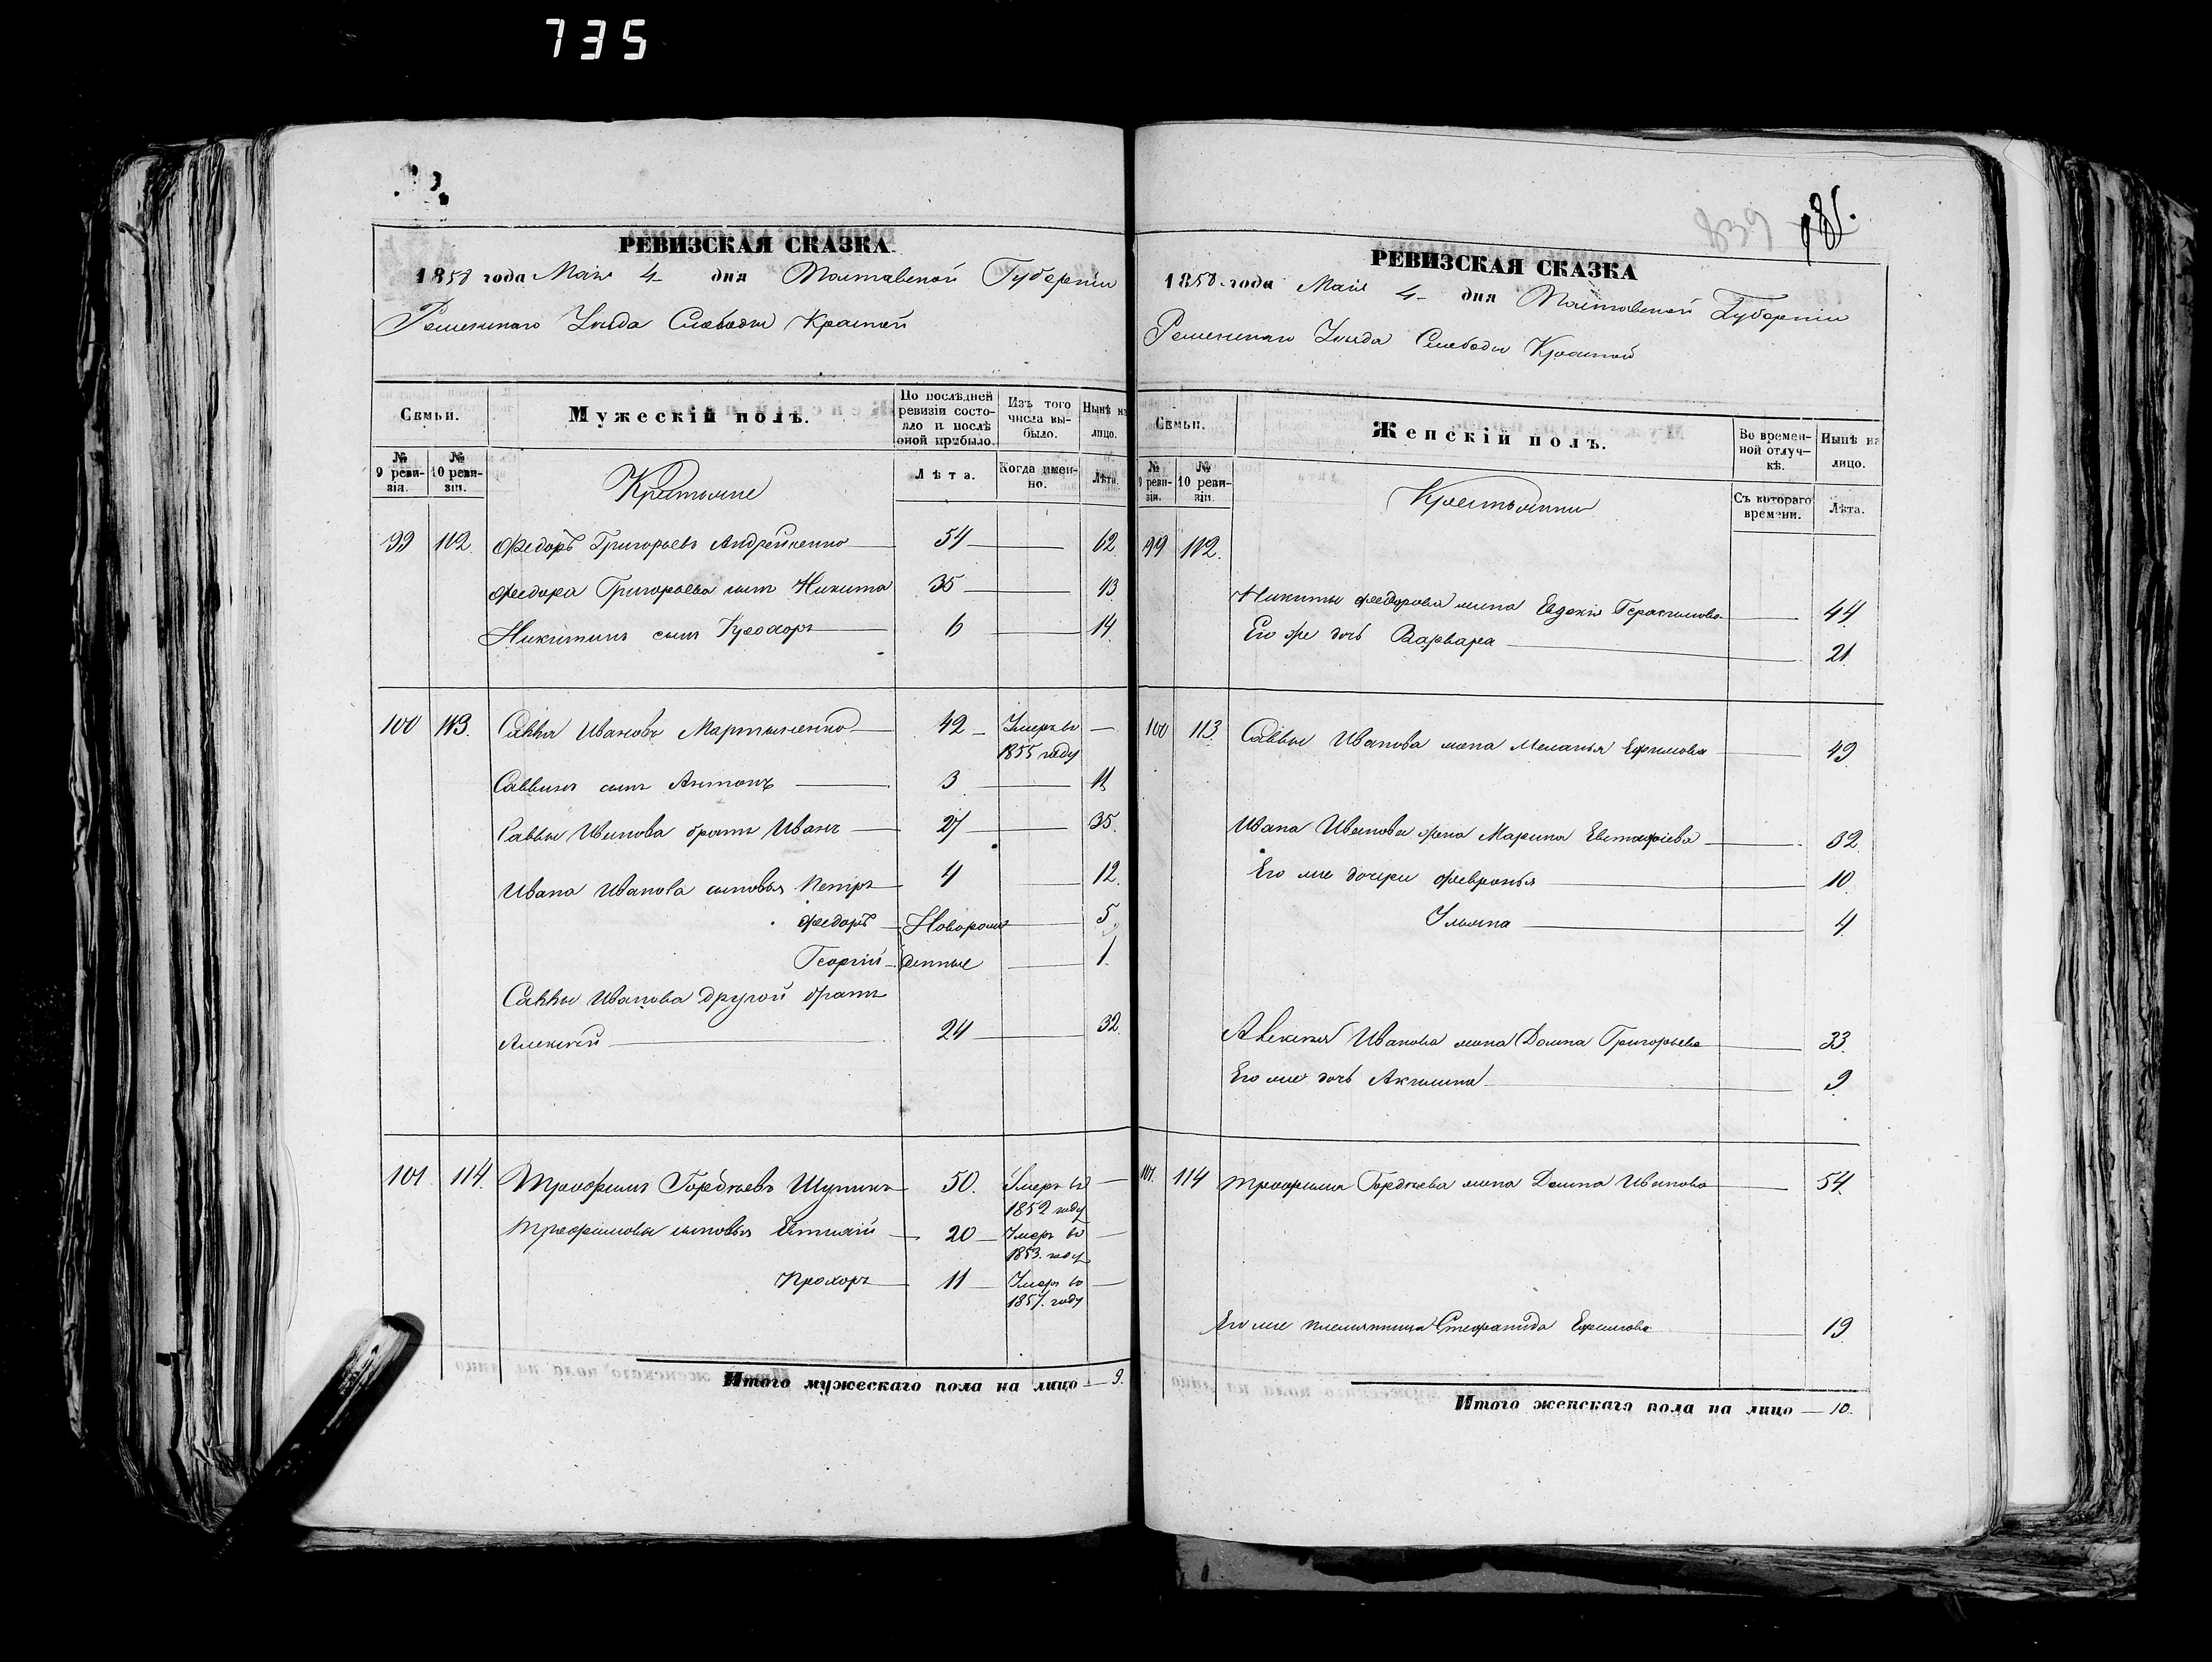 735
РЕВИЗСКАЯ СКАЗКА
1858 года Мая 4 дня Полтавской Губерніи
Роменскаго Уезда Слободы Красной
Семьи.
Мужескій полъ.
По послѣдней ревизіи состояло и послѣ оной прибыло.
Изъ того числа выбыло.
Нынѣ на лицо.
№ 9 ревизіи.
№ 10 ревизіи.
Крестьяне
Лѣта.
Когда именно.
Лѣта.
99 112. Федоръ Григорьевъ Андрейченко 54 62.
Федора Григорьева сынъ Никита 35 43
Никитинъ сынъ 6 14.
100 113. Савва Ивановъ Мартыненко 42 Умеръ въ 1855 году
Саввинъ сынъ Антонъ 3 11
Саввы Иванова братъ Иванъ 27 35.
Ивана Иванова сыновья Петръ 4 12.
Федоръ Новорож 5
Георгій денные 1.
Саввы Иванова другой братъ
Алексей 24 32.
101 114. Трофимъ Гордѣевъ Шупикъ 50. Умеръ въ 1852 году
Трофимовы сыновья 20 Умеръ въ 1853. году
Прохоръ 11 Умеръ въ 1857. году
Итого мужескаго пола на лицо 9.
839 785.
РЕВИЗСКАЯ СКАЗКА
1858 года Мая 4 дня Полтавской Губерніи
Роменскаго Уезда Слободы Красной
Семьи.
Женскій полъ.
Во временной отлучкѣ.
Нынѣ на лицо.
№ 9 ревизіи.
№ 10 ревизіи.
Крестьянки
Съ котораго времени.
Лѣта.
99 112.
Никиты Федорова жена Евдокія Герасимова 44
Его же дочь Варвара 21
100 113. Саввы Иванова жена Меланья Ефимова 49
Ивана Иванова жена Марина Евстафіева 32
Его же дочери Февронья 10.
Ульяна 4.
Алексея Иванова жена Домна Григорьева 33.
Его же дочь Акилина 9
101. 114 Трофима Гордѣева жена Домна Иванова 54.
Его же племянница Стефанида Ефимова 19
Итого женскаго пола на лицо 10.